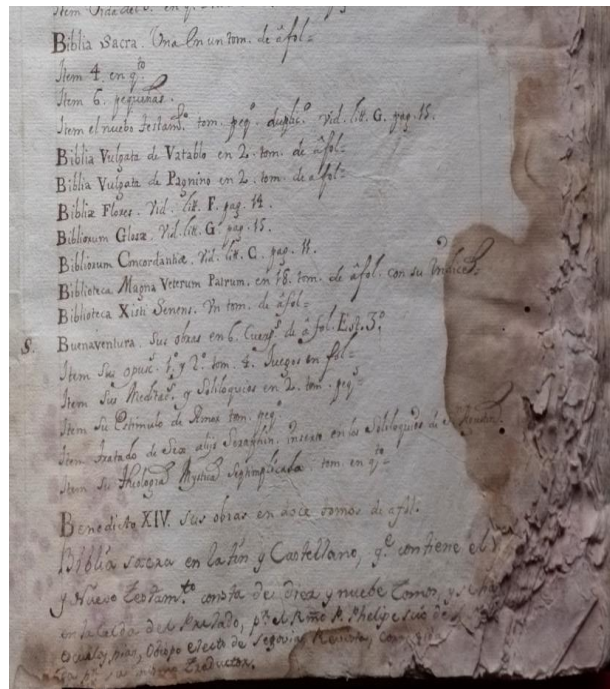 Item Vida del S. en q.
Biblia Sacra. Una en un tom. de áfol=
Item 4. en q.to
Item 6. pequeñas.
Item el nuebo Testam.to tom. peq.o duplic.o vid. litt. G. pag. 15.
Biblia Vulgata de Vatablo en 2. tom. de áfol=
Biblia Vulgata de Pagnino en 2. tom. de áfol=
Bibliæ Flores. Vid. litt. F. pag. 14.
Bibliorum Glosæ. Vid. litt. G. pag. 15.
Bibliorum Concordantiæ. Vid. litt. C. pag. 11.
Biblioteca Magna Veterum Patrum. en 18. tom. de áfol. con su Indice=
Biblioteca Xisti Senens. Un tom. de áfol=
S. Buenaventura. Sus obras en 6. Cuerp.s de áfol. Est. 3.o
Item Sus opusc.s 1.o y 2.o tom. 4. Juegos en fol=
Item Sus Meditac.s y Soliloquios en 2. tom. peq.s
Item Su Estimulo de Amor tom. peq.o
Item Tratado de Sex alijs Seraphin. inserto en los Soliloquios de
Item Su Theologia Mystica Septemplicada. tom. en q.to=
Benedicto XIV. Sus obras en doce tomos de áfol.
Biblia sacra en latin y Castellano, q.e contiene el
y Nuevo Testam.to consta de diez y nuebe Tomos, y
en la Celda del Prelado, p.r el Rmo P. Phelipe Scio de
Escuelas pias, Obispo electo de Segovia. Revista,
p.r su mismo Traductor.